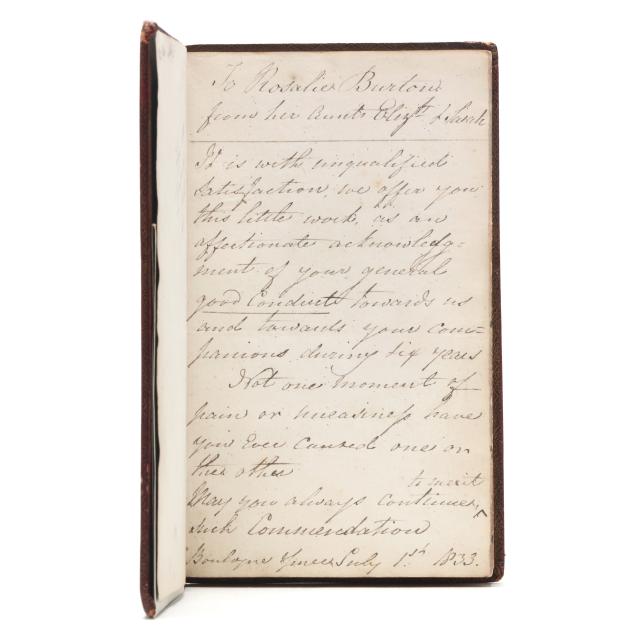 To Rosalie Burton
from her Aunts Elizth & Sarah
It is with unqualified
satisfaction, we offer you
this little work, as an
affectionate acknowledg=
ment of your general
good Conduct towards us
and towards your com=
panions during six years
Not one moment of
pain or uneasiness have
you Ever caused one or
the other
to merit
May you always continue ^
such Commendation
Boulogne s/mer July 1st 1833.